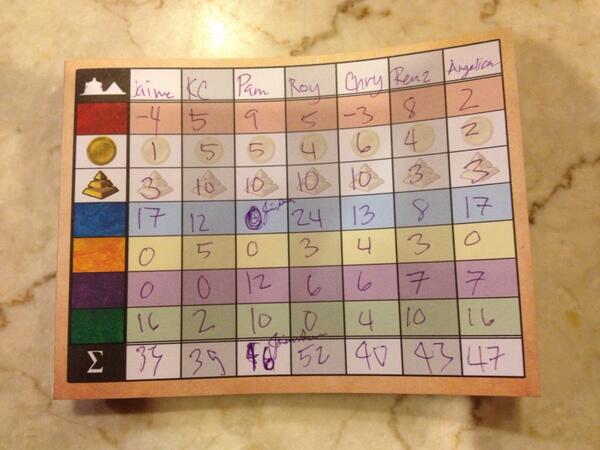 Jaime KC Pam Roy Chry Renz Angelica
-4 5 9 5 -3 8 2
1 5 5 4 6 4 2
3 10 10 10 10 3 3
17 12 0 24 13 8 17
0 5 0 3 4 3 0
0 0 12 6 6 7 7
16 2 10 0 4 10 16
Σ 33 39 46 52 40 43 47